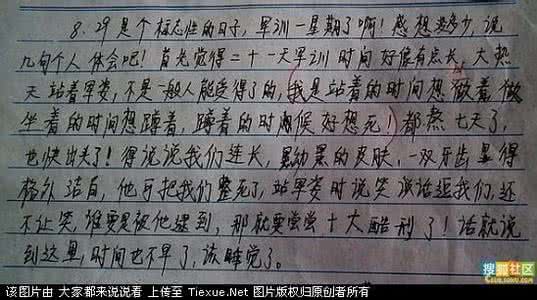 8.29是个标志性的日子，军训一星期了啊！感想没多少，说
几句个人体会吧！首先觉得二十一天军训时间好像有点长，大热
天站着军姿，不是一般人能受得了的，我是站着的时间想做着，做
坐着的时间想蹲着，蹲着的时间候好想死！都熬七天了，
也快出头了！得说说我们连长，黝黑的皮肤，一双牙齿显得
格外洁白，他可把我们整死了，站军姿时说笑话逗我们，还
不让笑，谁要是被他逮到，那就要尝尝十大酷刑了！话就说
到这里，时间也不早了，该睡觉了。
搜狐社区
CLUB.SOHU.COM
该图片由 大家都来说说看 上传至 Tiexue.Net 图片版权归原创者所有